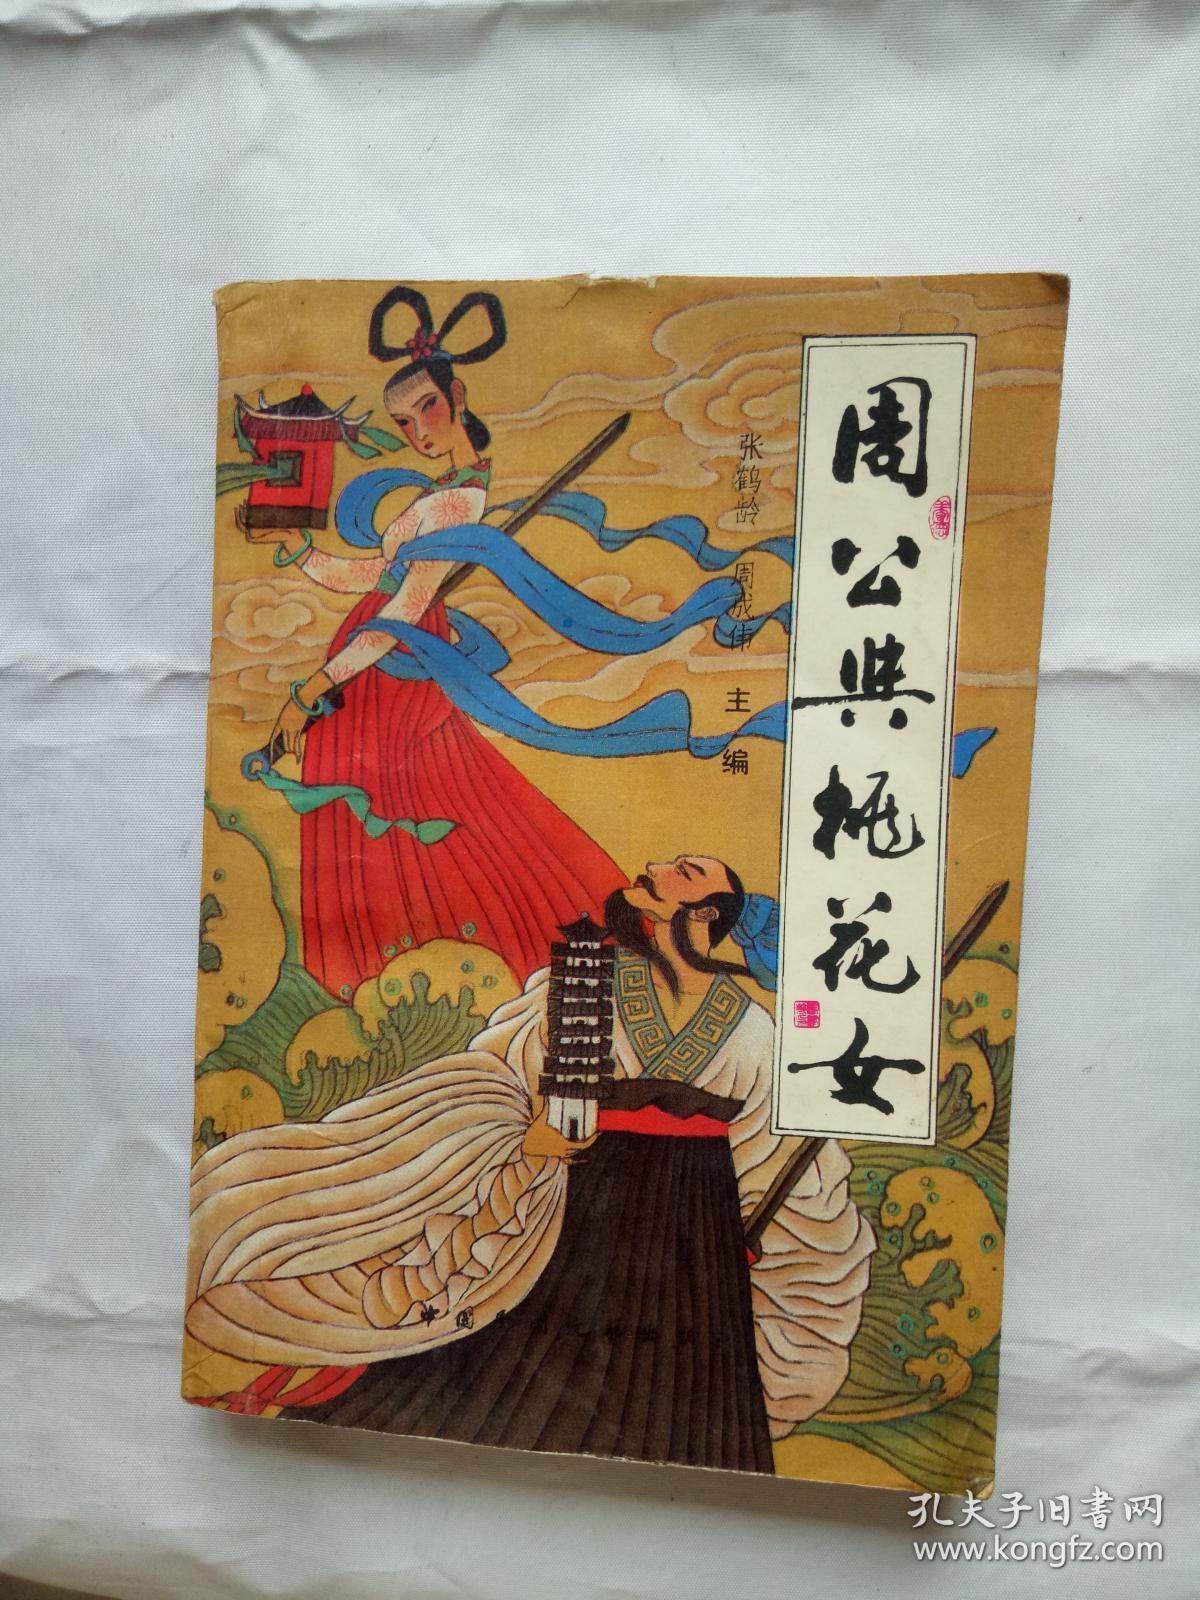 周公與桃花女
张鹤龄 周成伟 主编
孔夫子旧书网
www.kongfz.com